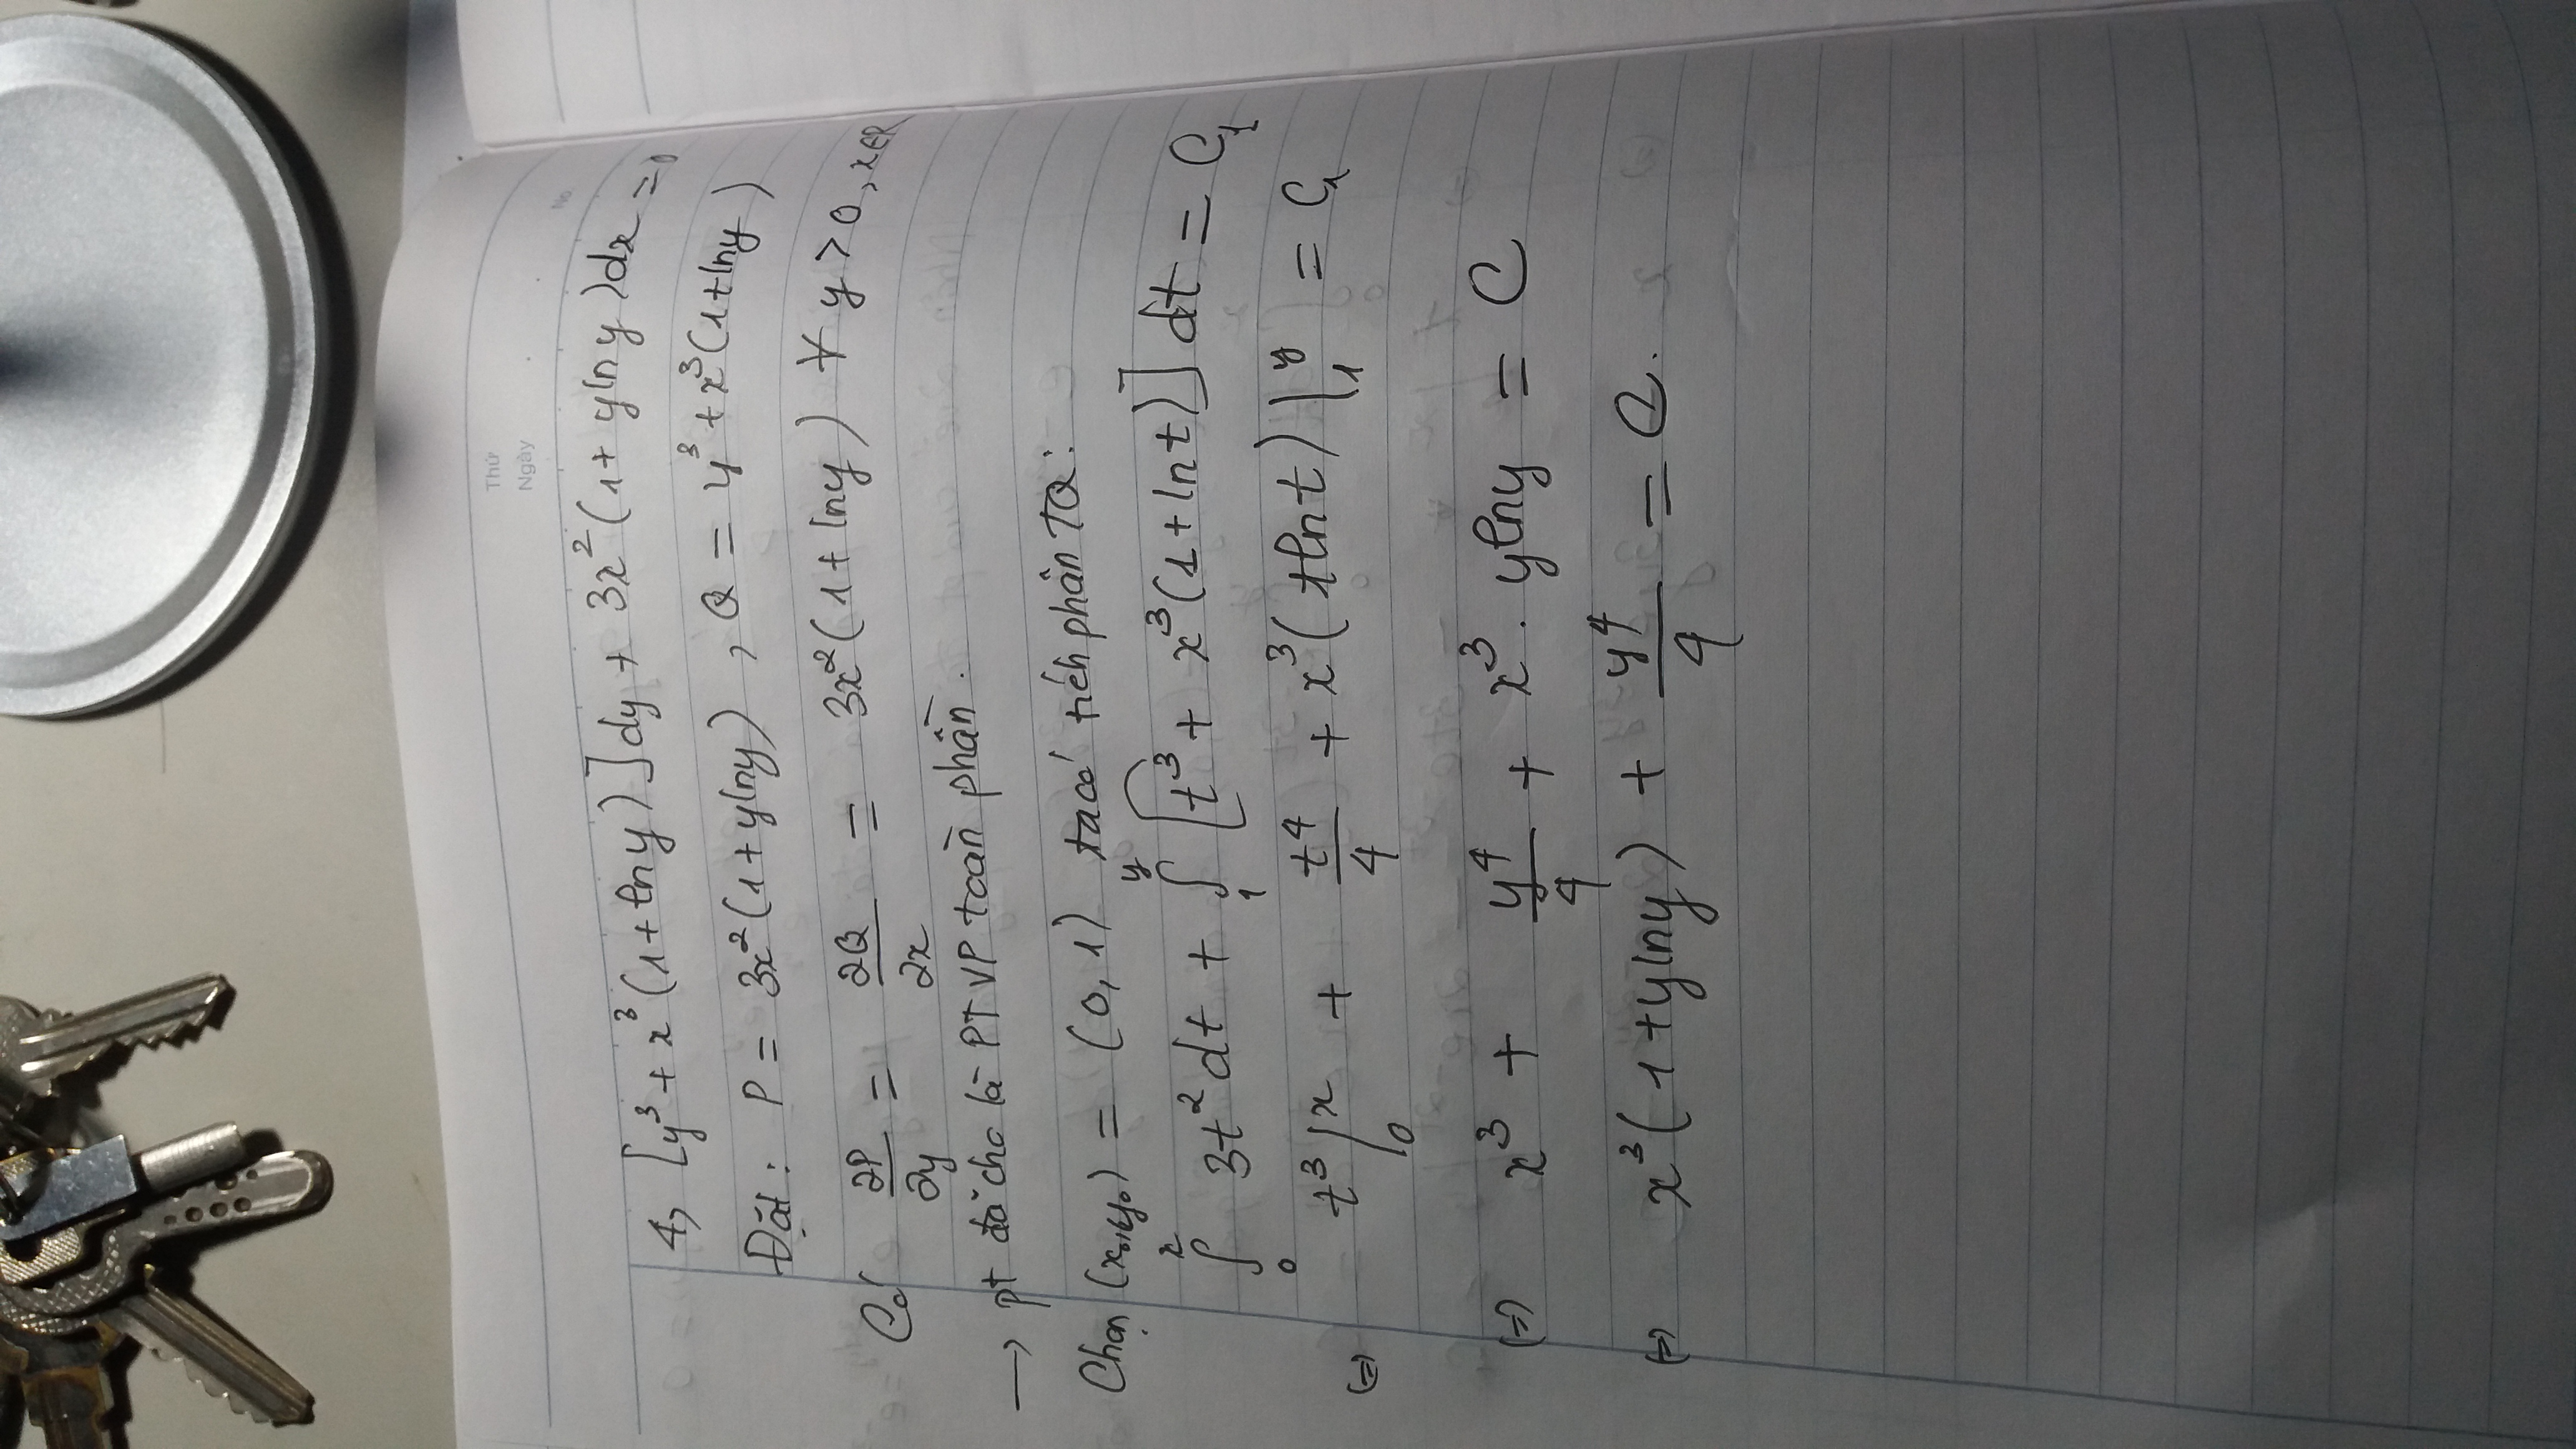 Thứ
Ngày
No.
4, [y³ + x³(1+lny)]dy + 3x²(1+ ylny)dx = 0
Đặt: P = 3x²(1+ylny) , Q = y³+x³(1+lny)
Có ∂P/∂y = ∂Q/∂x = 3x²(1+lny) ∀ y>0, x∈R
→ pt đã cho là PTVP toàn phần.
Chọn (x₀,y₀) = (0,1) ta có tích phân TQ:
∫₀ˣ 3t²dt + ∫₁ʸ [t³ + x³(1+lnt)]dt = C₁
(=) t³|₀ˣ + t⁴/4 + x³(tlnt)|₁ʸ = C₁
(=) x³ + y⁴/4 + x³. ylny = C
(=) x³(1+ylny) + y⁴/4 = C.